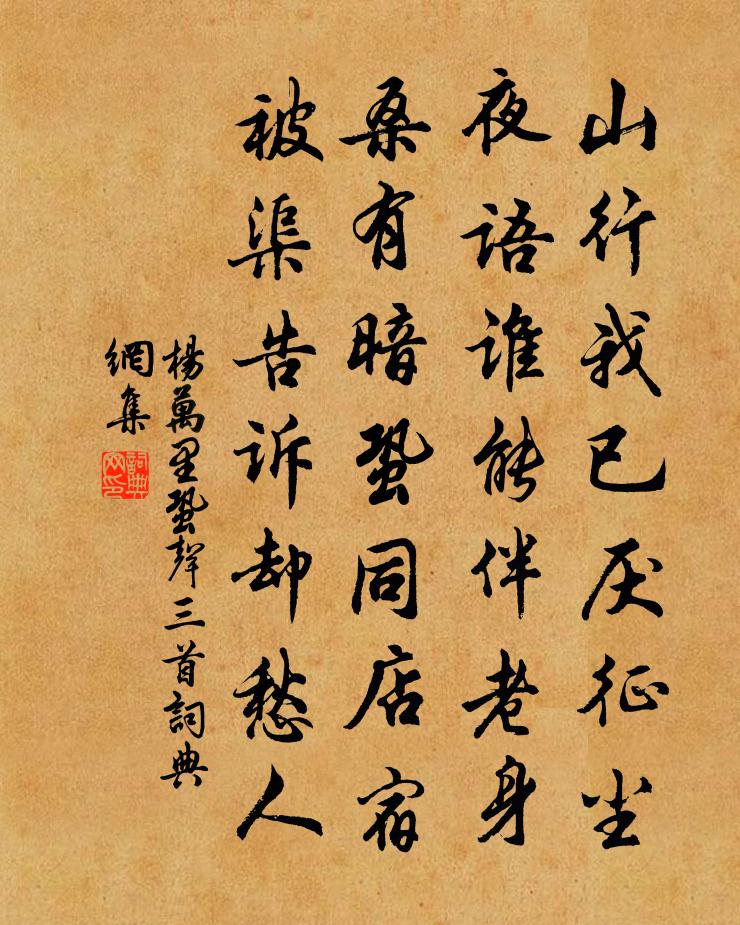 山行我已厌征尘
夜语谁能伴老身
桑有暗蛩同店宿
被渠告诉却愁人
楊萬里蛩聲三首詞典
網集
詞典
网印